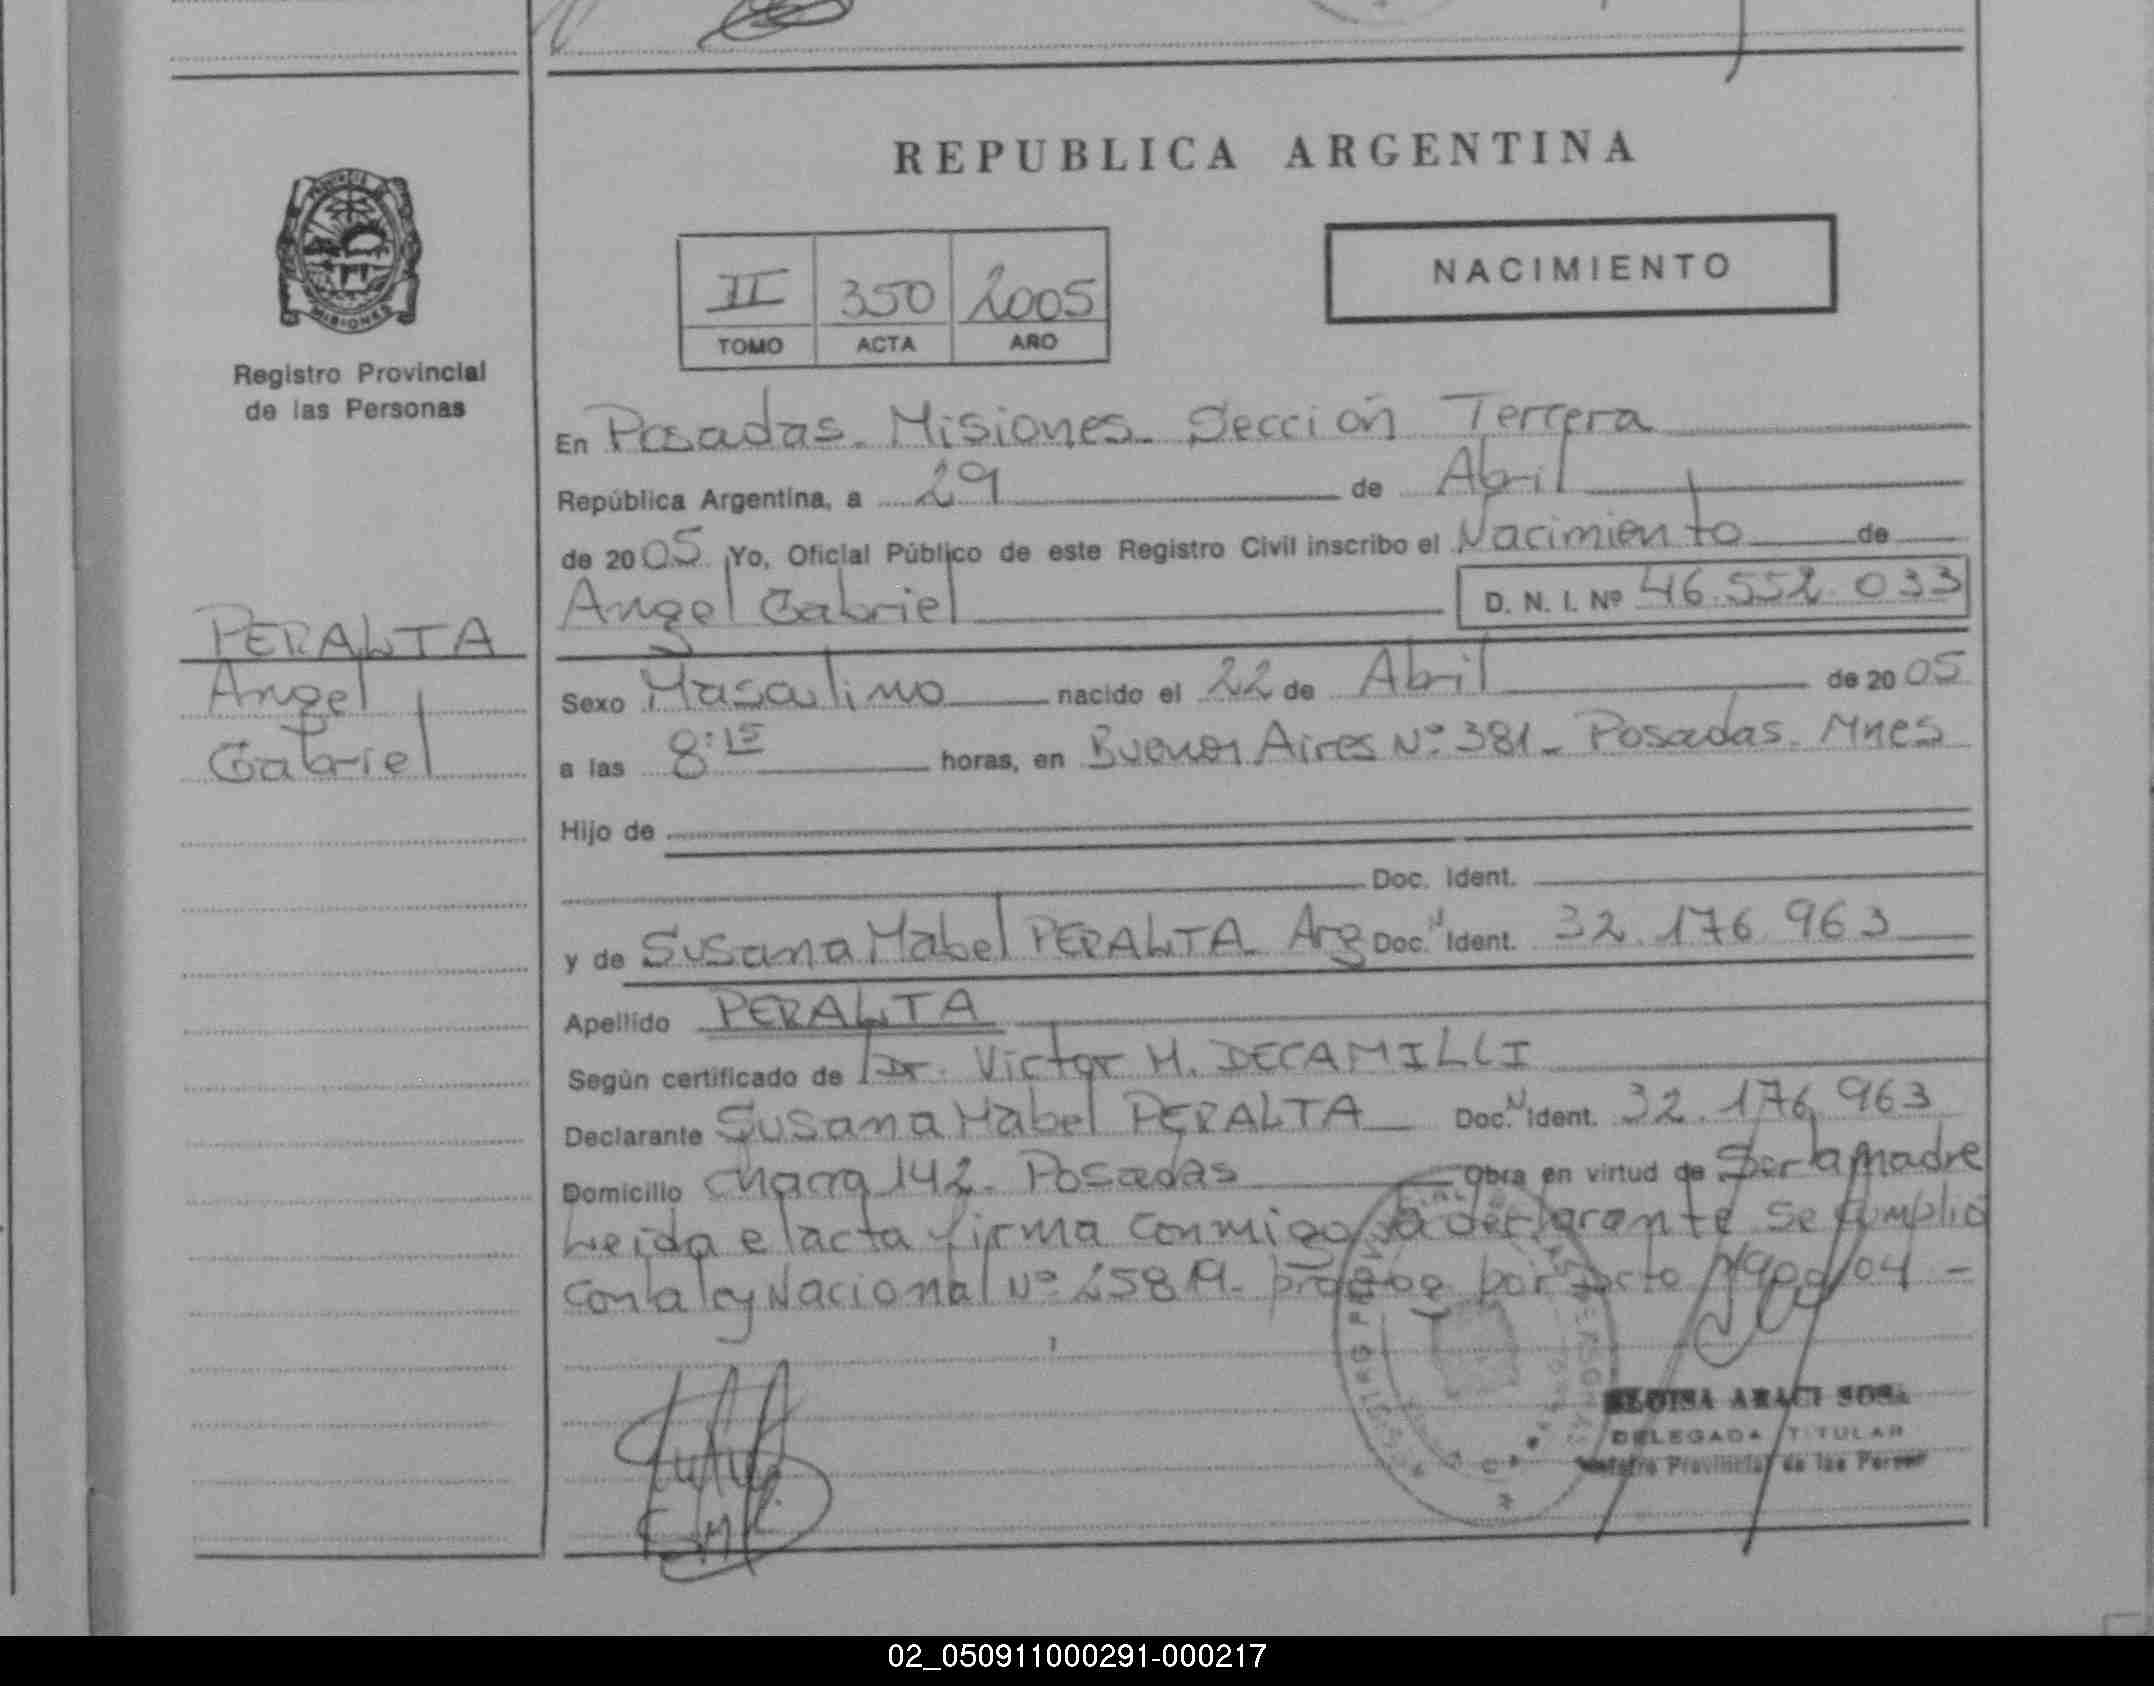 REPUBLICA ARGENTINA
NACIMIENTO
II 350 2005
TOMO ACTA AÑO
Registro Provincial
de las Personas
PERALTA
Angel
Gabriel
En Posadas. Misiones. Sección Tercera
República Argentina, a 29 de Abril
de 2005. Yo, Oficial Público de este Registro Civil inscribo el Nacimiento de
Angel Gabriel D. N. I. Nº 46.552.033
Sexo Masculino nacido el 22 de Abril de 2005
a las 8:15 horas, en Buenos Aires Nº 381 - Posadas. Mnes
Hijo de
Doc. Ident.
y de Susana Mabel PERALTA Arg Doc. N Ident. 32.176.963
Apellido PERALTA
Según certificado de Dr. Victor H. DECAMILLI
Declarante Susana Mabel PERALTA Doc. N Ident. 32.176.963
Domicilio chacra 142. Posadas Obra en virtud de Ser la madre
Leida el acta firma conmigo la declarante se cumplió
con la ley Nacional Nº 25819 por 04 -
ELOISA ARACI SOSA
DELEGADA TITULAR
Registro Provincial de las Person
02_050911000291-000217